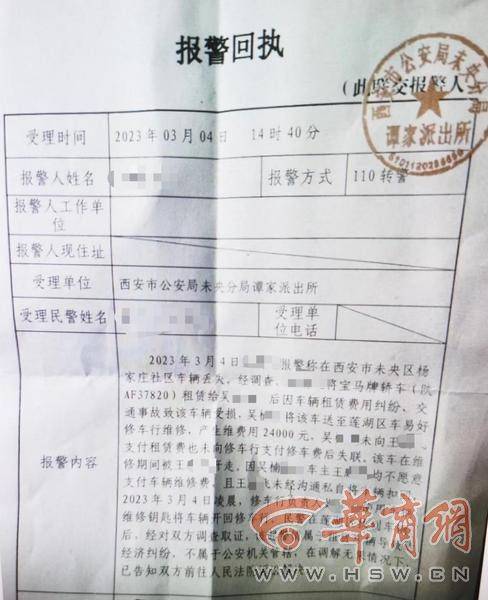 报警回执
（此联交报警人
西安市公安局未央分局
谭家派出所
受理时间 2023年03月04日 14时40分
报警人姓名 报警方式 110转警
报警人工作单位
报警人现住址
受理单位 西安市公安局未央分局谭家派出所
受理民警姓名 受理单位电话
报警内容
2023年3月4日 报警称在西安市未央区杨
家庄社区车辆丢失，经调查， 将宝马牌轿车（陕
AF37820）租赁给吴 后因车辆租赁费用纠纷、交
通事故致该车辆受损，吴 将该车送至莲湖区车易好
修车行维修，产生维费用24000元，吴 未向王
支付租赁费也未向修车行支付修车费后失联。该车在维
修期间被王 开走。因吴 车主王 均不愿意
支付车辆维修费，且王 飞未经沟通私自将车辆
2023年3月4日凌晨，修车行负责人
维修钥匙将车辆开回修 民警在莲
后，经对双方调查取证， 属于 辆导致
经济纠纷，不属于公安机关管辖，在调解无果情况下
已告知双方前往人民法院
華商網
WWW.HSW.CN